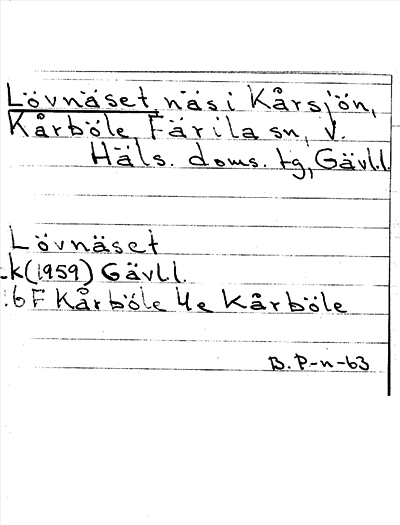 Lövnäset, näs i Kårsjön,
Kårböle, Färila sn, V.
Häls. doms. tg, Gävl.l.
Lövnäset
-k(1959) Gävl.l.
16 F Kårböle 4e Kårböle
B. P-n-63